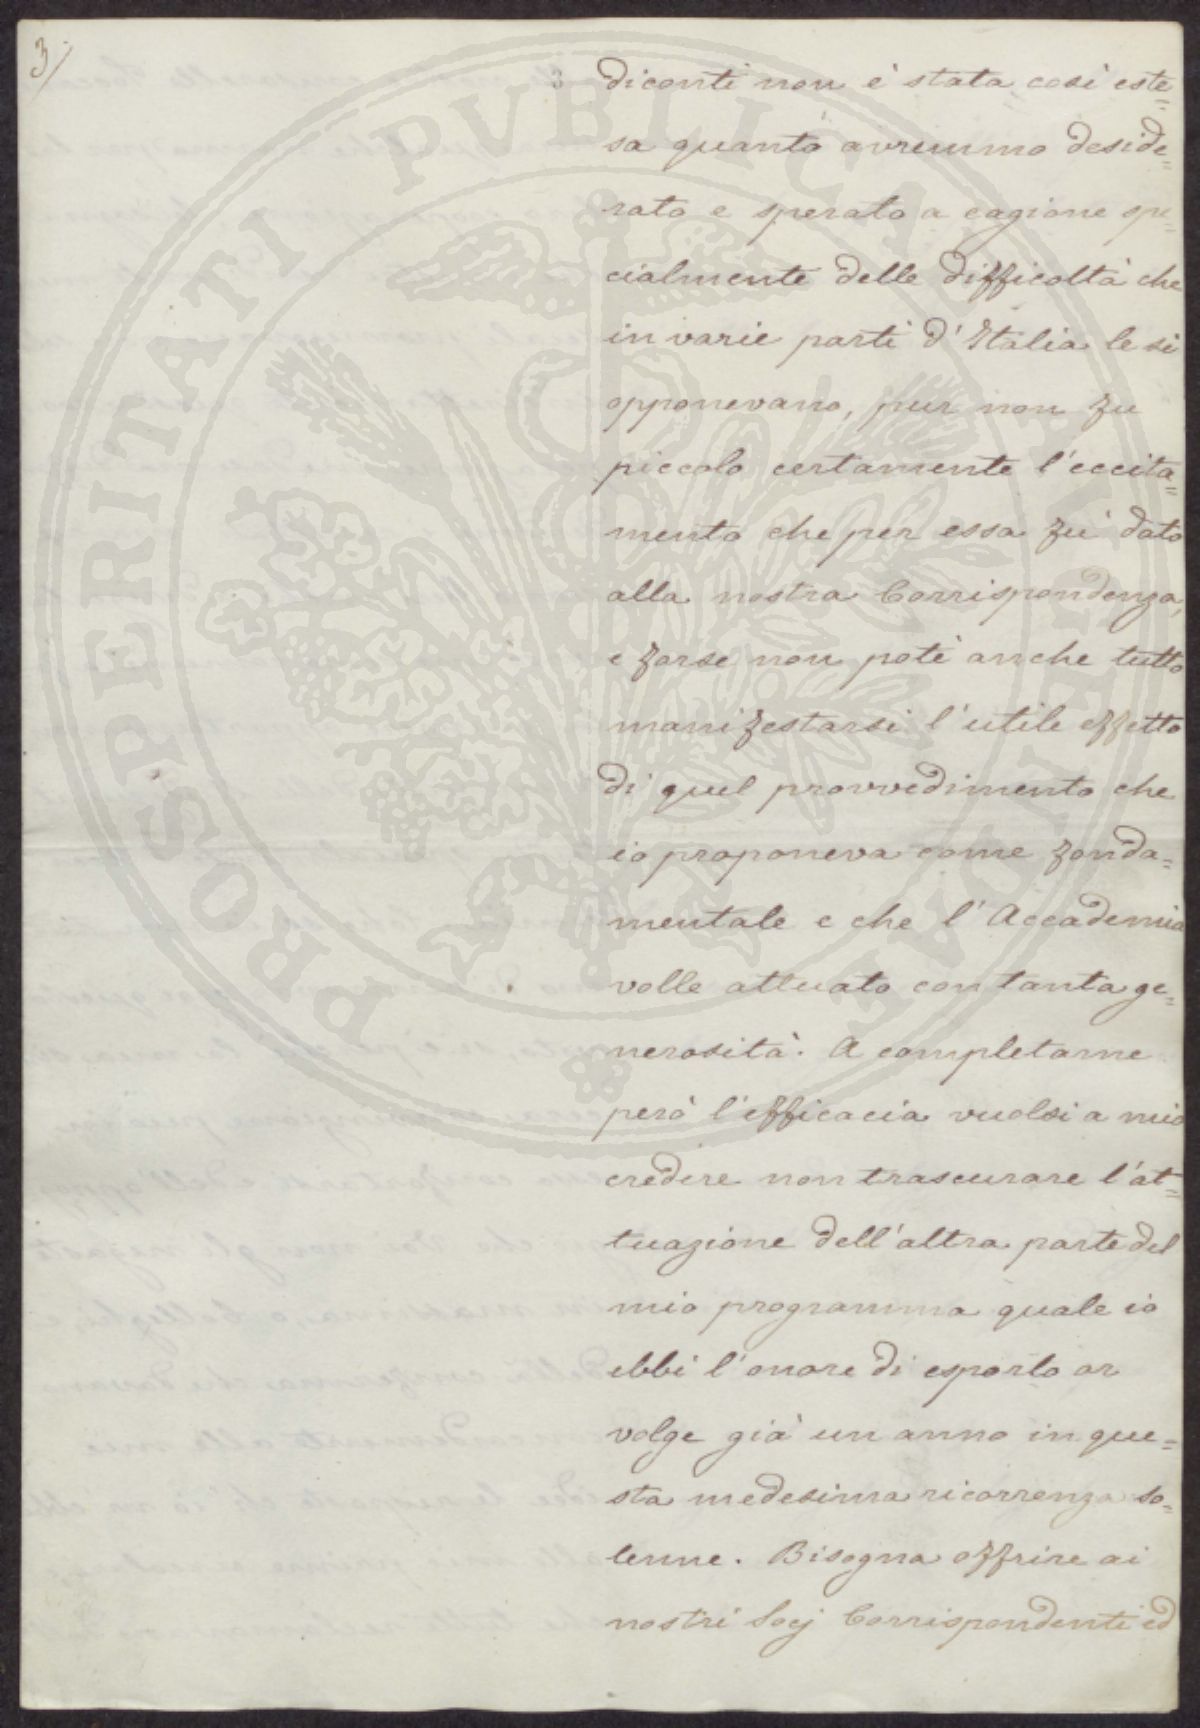 3/
3 diconti non è stata così este=
sa quanto avremmo deside=
rato e sperato a cagione spe=
cialmente delle difficoltà che
in varie parti d'Italia le si
opponevano, pur non fu
piccolo certamente l'eccita=
mento che per essa fu dato
alla nostra Corrispondenza,
e forse non potè anche tutto
manifestarsi l'utile effetto
di quel provvedimento che
io proponeva come fonda=
mentale e che l'Accademia
volle attuato con tanta ge=
nerosità. A completarne
però l'efficacia vuolsi a mio
credere non trascurare l'at=
tuazione dell'altra parte del
mio programma quale io
ebbi l'onore di esporlo or
volge già un anno in que=
sta medesima ricorrenza so=
lenne. Bisogna offrire ai
nostri Socj Corrispondenti ed
PROSPERITATI PVBLICAE AVGENDAE